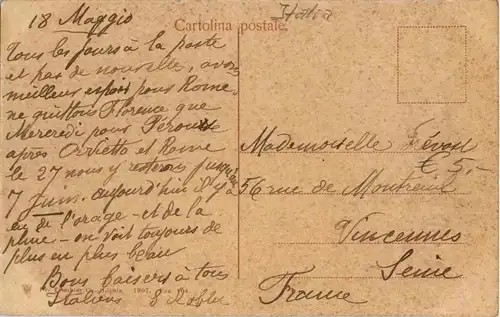 Italia
Cartolina postale.
18 Maggio
Tous les jours à la poste
et pas de nouvelle, avons
meilleur espoir pour Rome
ne quittons Florence que
Mercredi pour Pérouse
après Orvietto et Rome
le 27 nous y resterons jusqu'au
7 juin. aujourd'hui il y a
eu de l'orage - et de la
pluie - on voit toujours de
plus en plus beau
Bons baisers à tous
Italiens
Mademoiselle
€ 5,-
56 rue de Montreuil
Vincennes
Seine
France